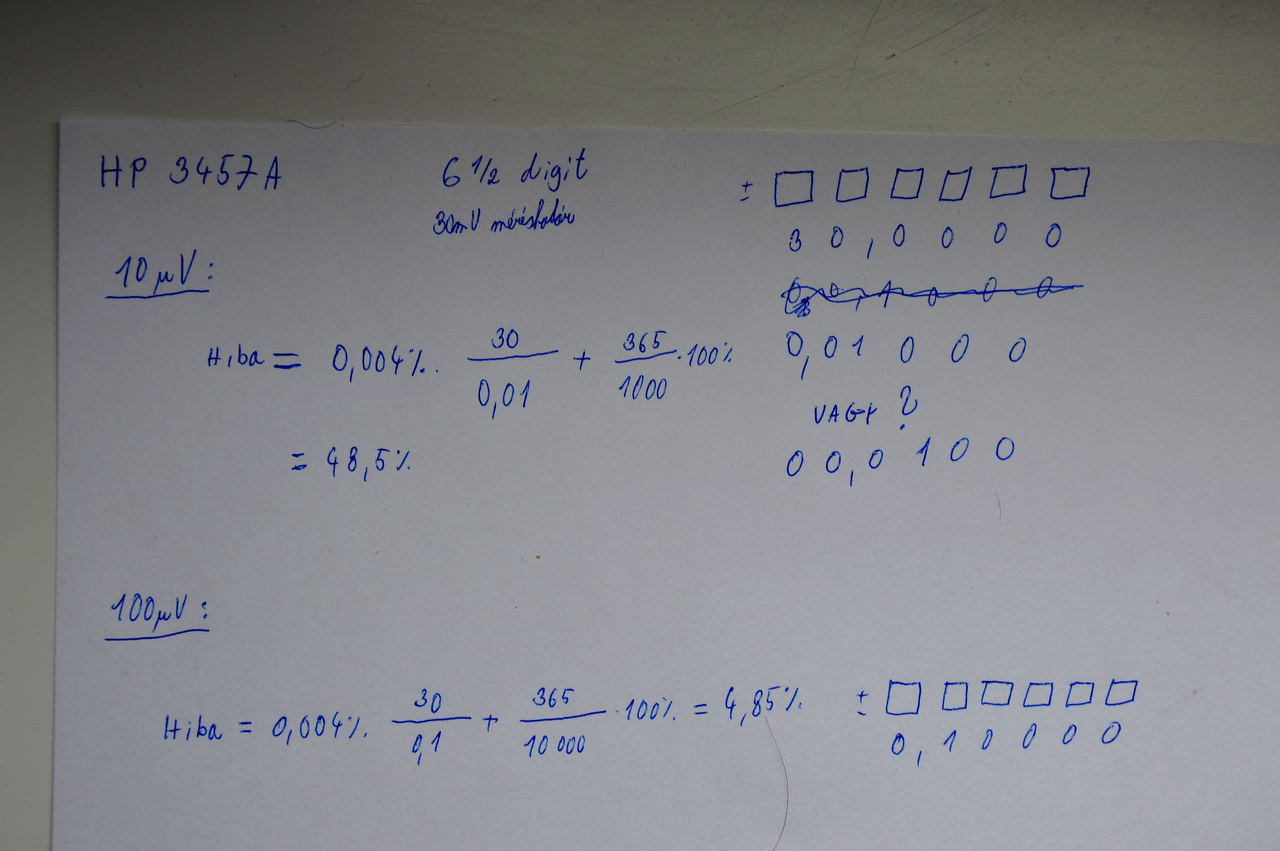 HP 3457A 6 1/2 digit ± □ □ □ □ □ □
30mV méréshatár 3 0 , 0 0 0 0
10 μV:
0 0 , 1 0 0 0
Hiba = 0,004%. 30/0,01 + 365/1000 . 100% 0 , 0 1 0 0 0
VAGY ?
= 48,5% 0 0 , 0 1 0 0
100μV:
Hiba = 0,004%. 30/0,1 + 365/10 000 . 100% = 4,85% ± □ □ □ □ □ □
0 , 1 0 0 0 0